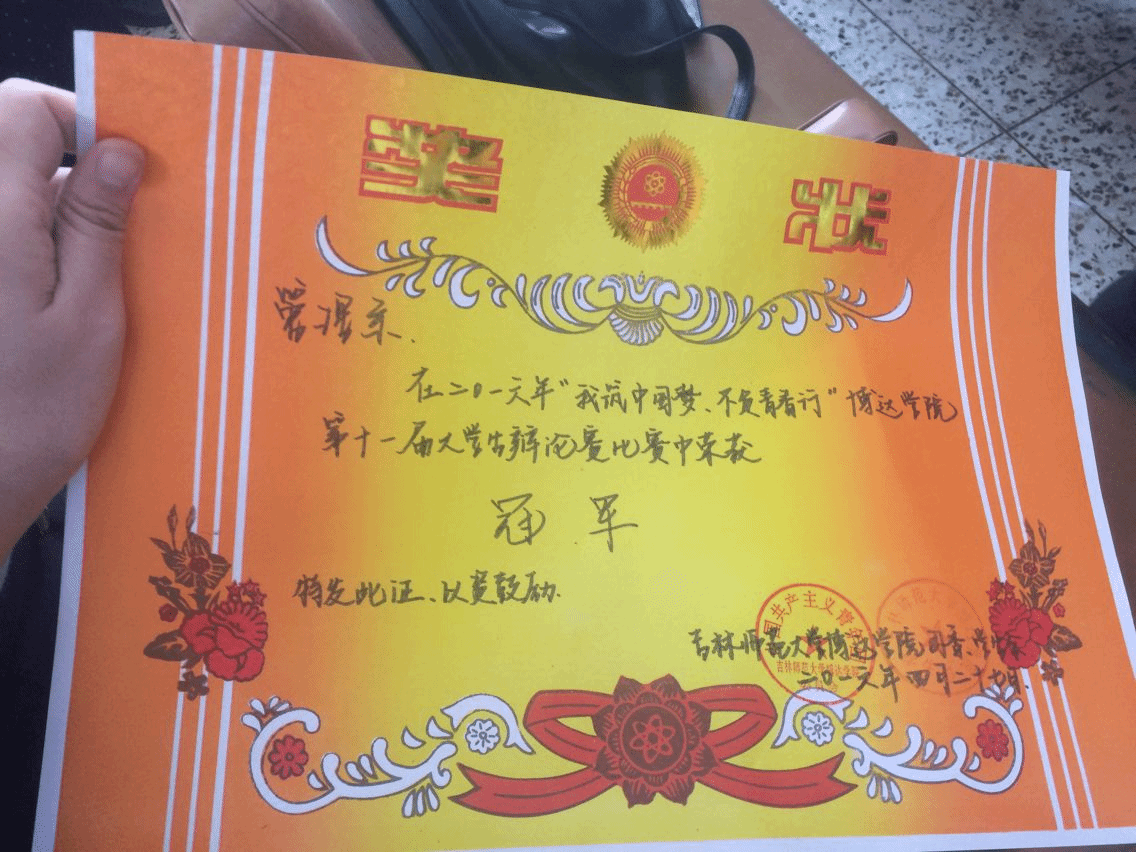 奖状
管理系、
在二〇一六年“我筑中国梦、不负青春行”博达学院
第十一届大学生辩论赛比赛中荣获
冠军
特发此证、以资鼓励.
吉林师范大学博达学院团委.学生会
二〇一六年四月二十七日.
国共产主义青
吉林师范大学博达学院
林师范大学